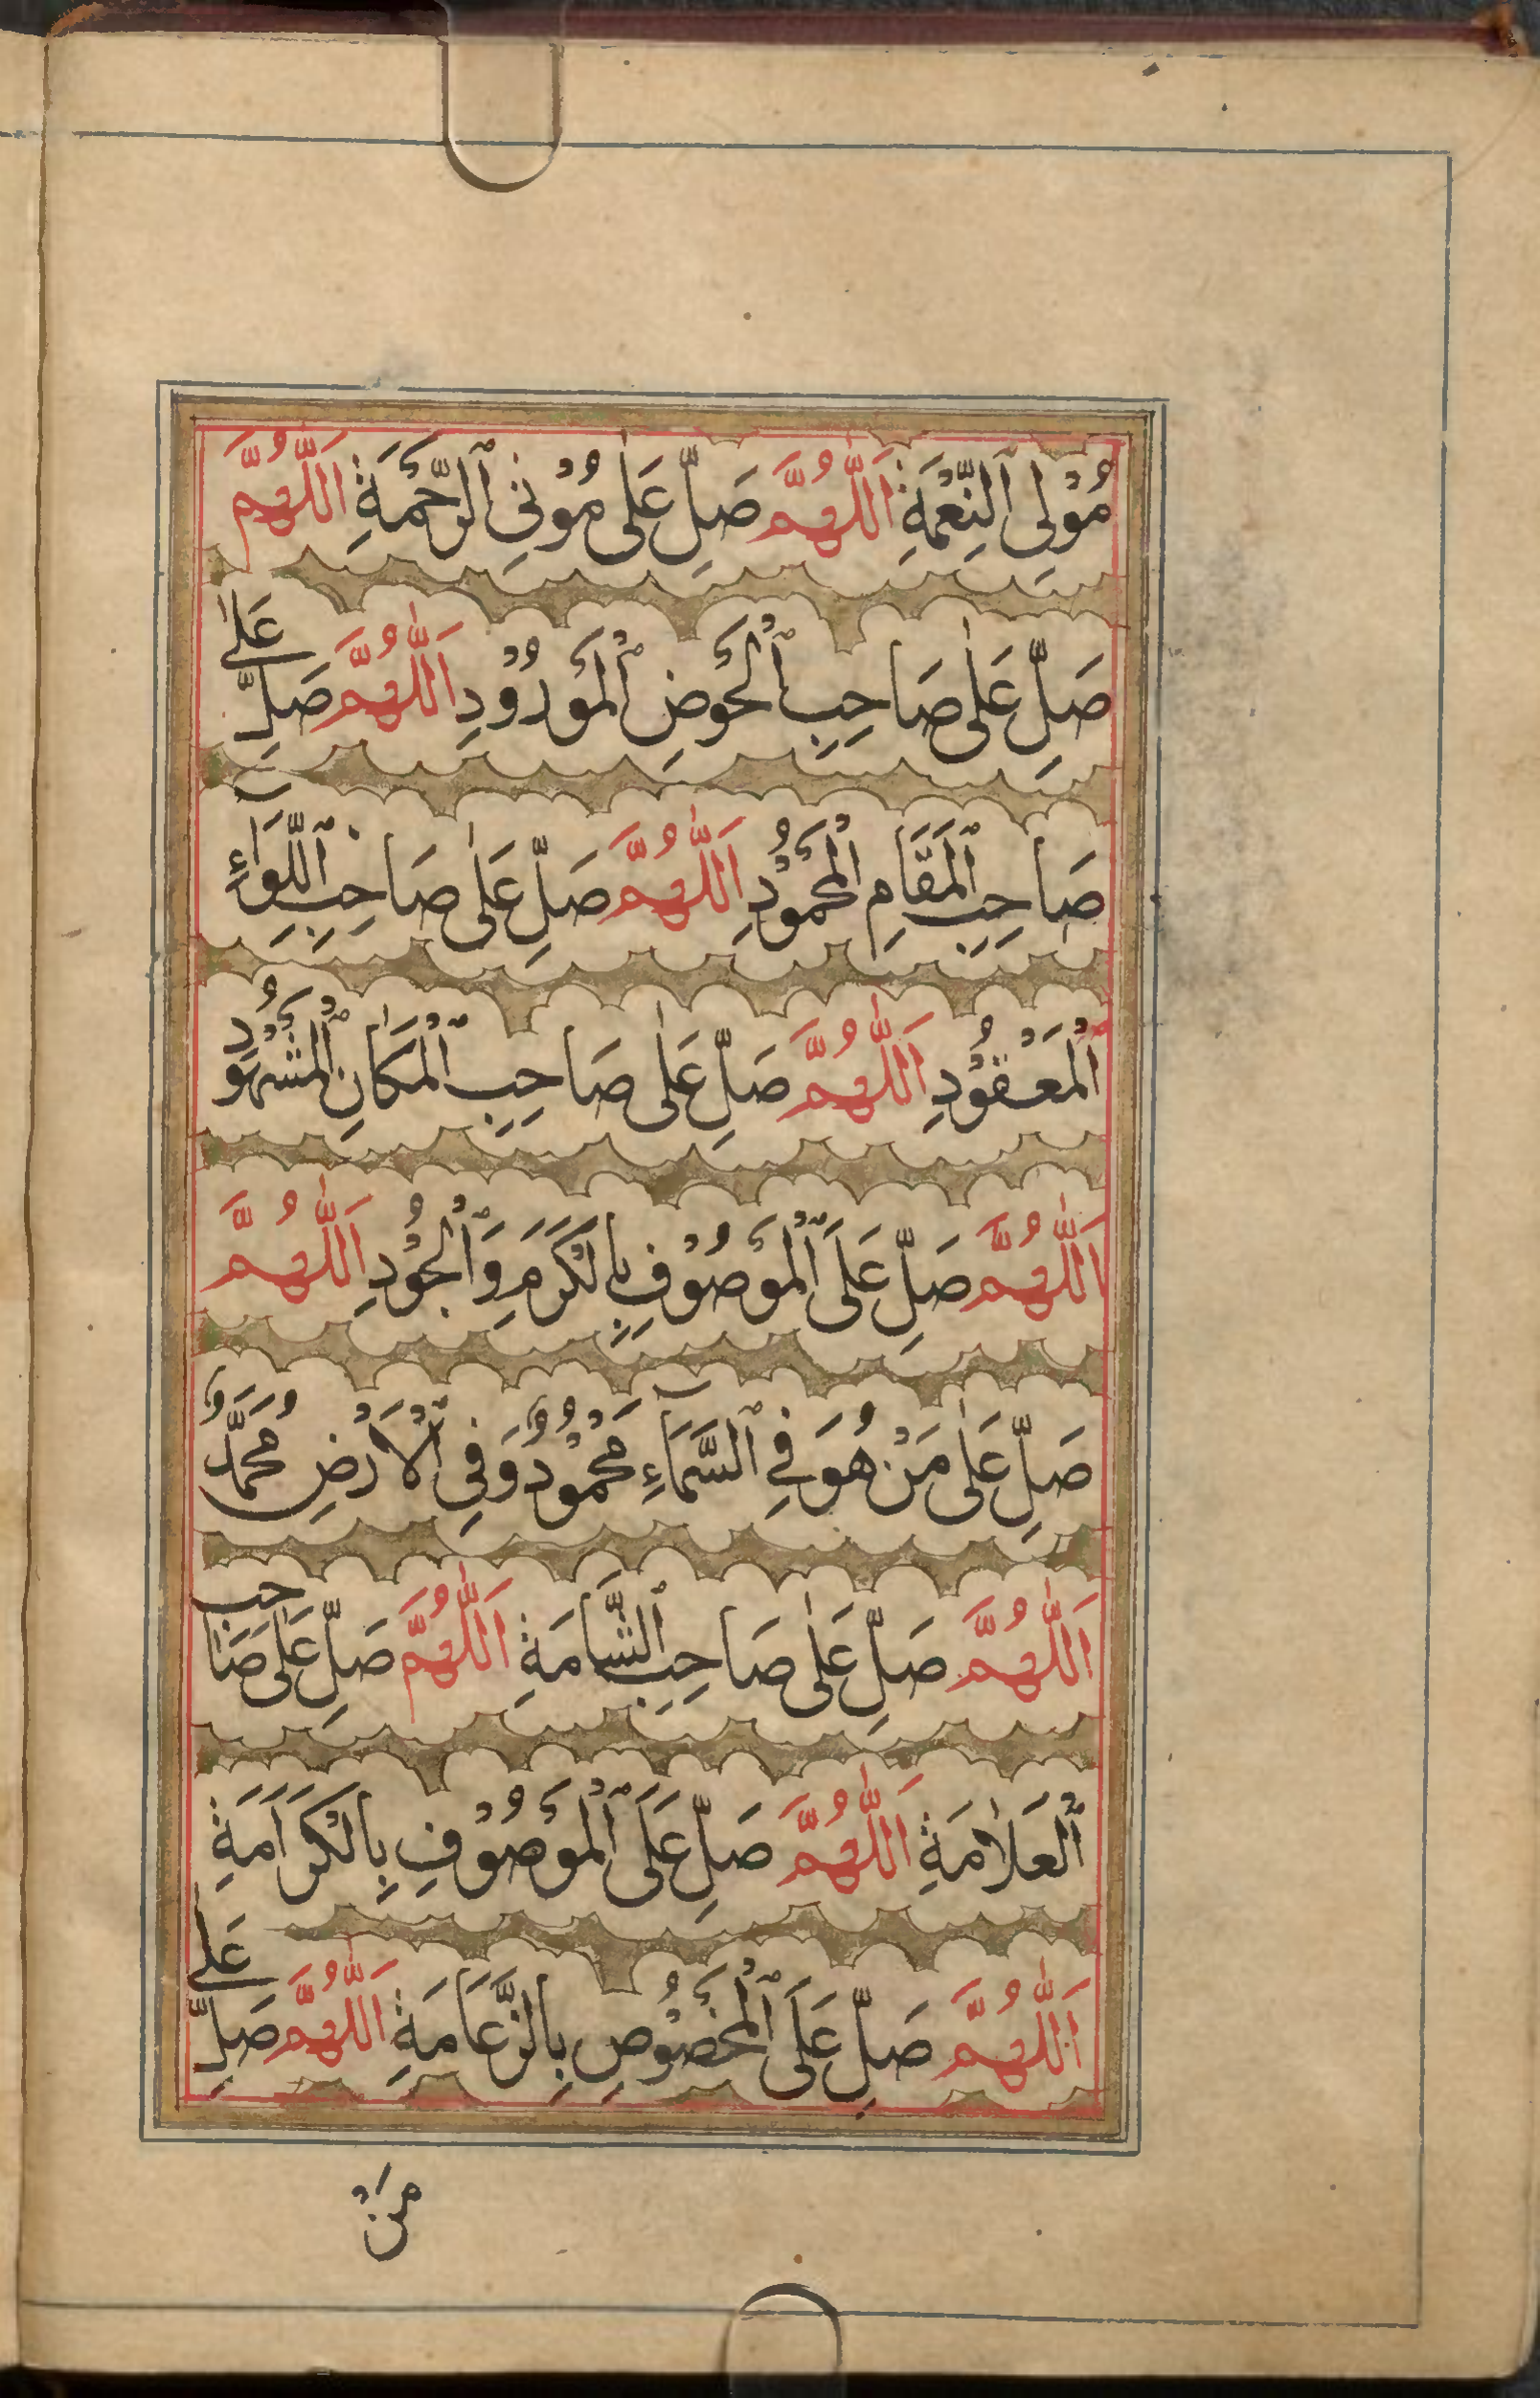 مُوْلِی ٱلنِّعْمَةِ اَللّٰهُمَّ صَلِّ عَلٰی مُوْتِی ٱلرَّحْمَةِ اَللّٰهُمَّ
صَلِّ عَلٰی صَاحِبِ ٱلْحَوْضِ ٱلْمَوْرُوْدِ اَللّٰهُمَّ صَلِّ عَلٰی
صَاحِبِ ٱلْمَقَامِ ٱلْمَحْمُوْدِ اَللّٰهُمَّ صَلِّ عَلٰی صَاحِبِ ٱللِّوَآءِ
ٱلْمَعْقُوْدِ اَللّٰهُمَّ صَلِّ عَلٰی صَاحِبِ ٱلْمَكَانِ ٱلْمَشْهُوْدِ
اَللّٰهُمَّ صَلِّ عَلَی ٱلْمَوْصُوْفِ بِالْكَرَمِ وَٱلْجُوْدِ اَللّٰهُمَّ
صَلِّ عَلٰی مَنْ هُوَ فِی ٱلسَّمَآءِ مَحْمُوْدٌ وَفِی ٱلْاَرْضِ مُحَمَّدٌ
اَللّٰهُمَّ صَلِّ عَلٰی صَاحِبِ ٱلشَّامَةِ اَللّٰهُمَّ صَلِّ عَلٰی صَاحِبِ
ٱلْعَلَامَةِ اَللّٰهُمَّ صَلِّ عَلَی ٱلْمَوْصُوْفِ بِالْكَرَامَةِ
اَللّٰهُمَّ صَلِّ عَلَی ٱلْمَخْصُوْصِ بِالزَّعَامَةِ اَللّٰهُمَّ صَلِّ عَلٰی
مَنْ